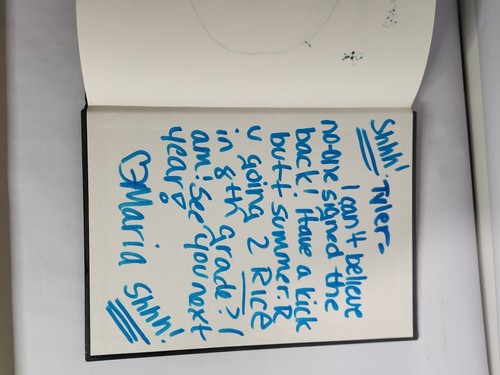 Shhh! Tyler-
I can't believe
no-one signed the
back! Have a kick
butt summer. R
U going 2 RICE
in 8th grade? I
am! See you next
year!
♡Maria Shhh!